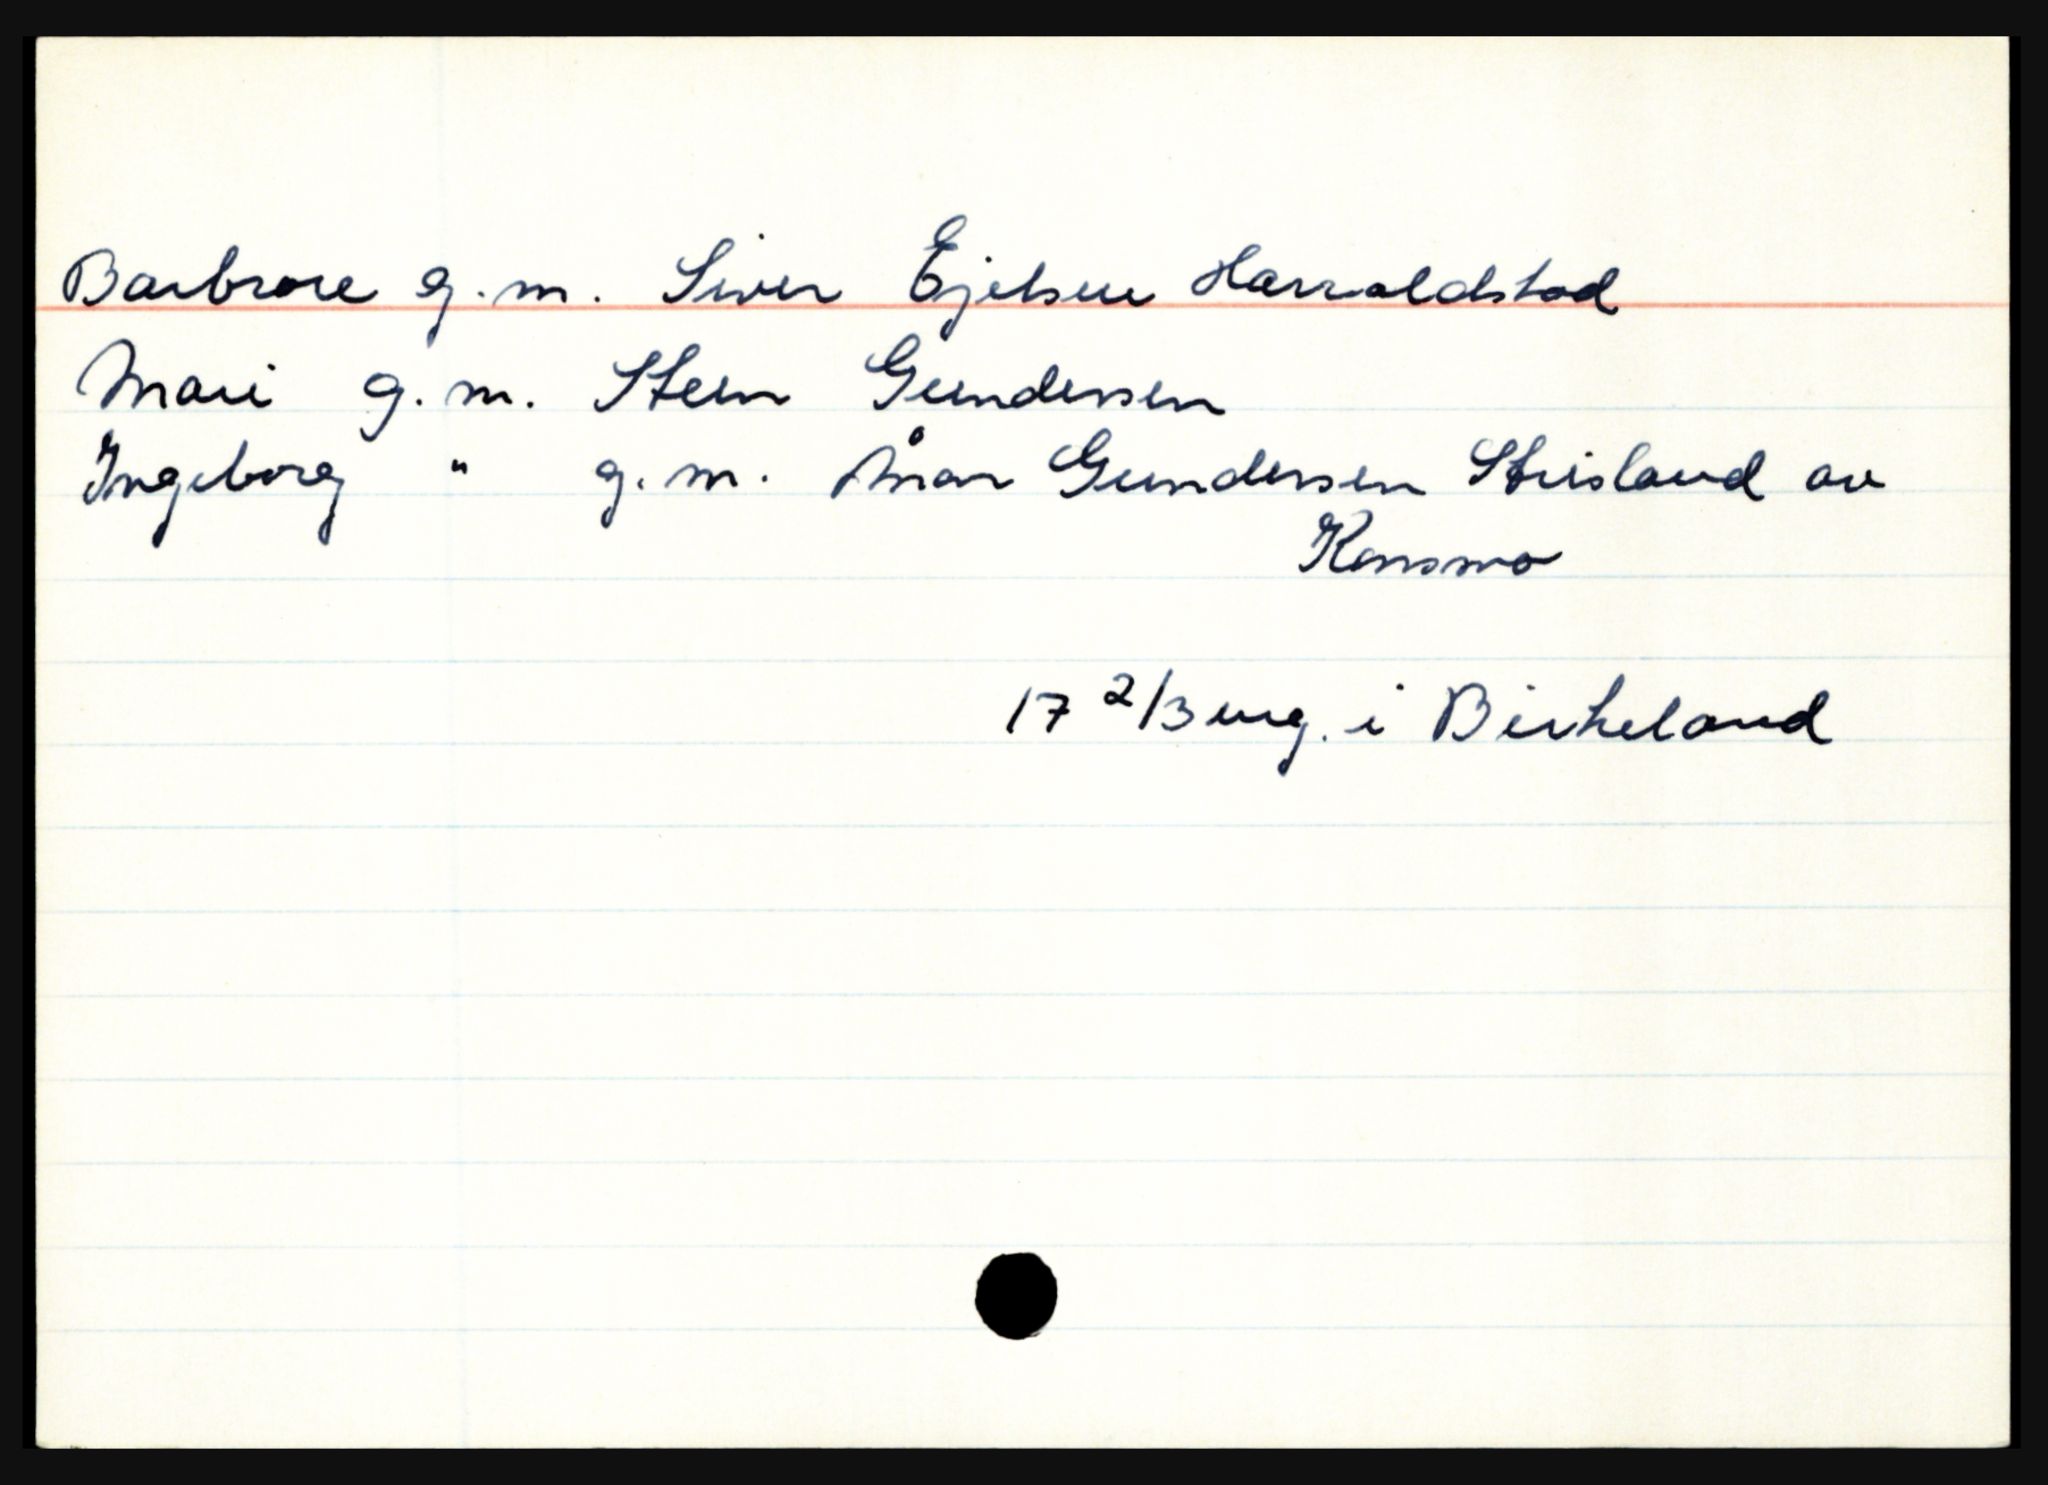 Barbroe g.m. Siver Ejelsen Harraldstad
Mari g.m. Steen Gundersen
Ingeborg " g.m. Åman Gundersen Stuisland av
Konsmo
17 2/3 eng. i Birkeland